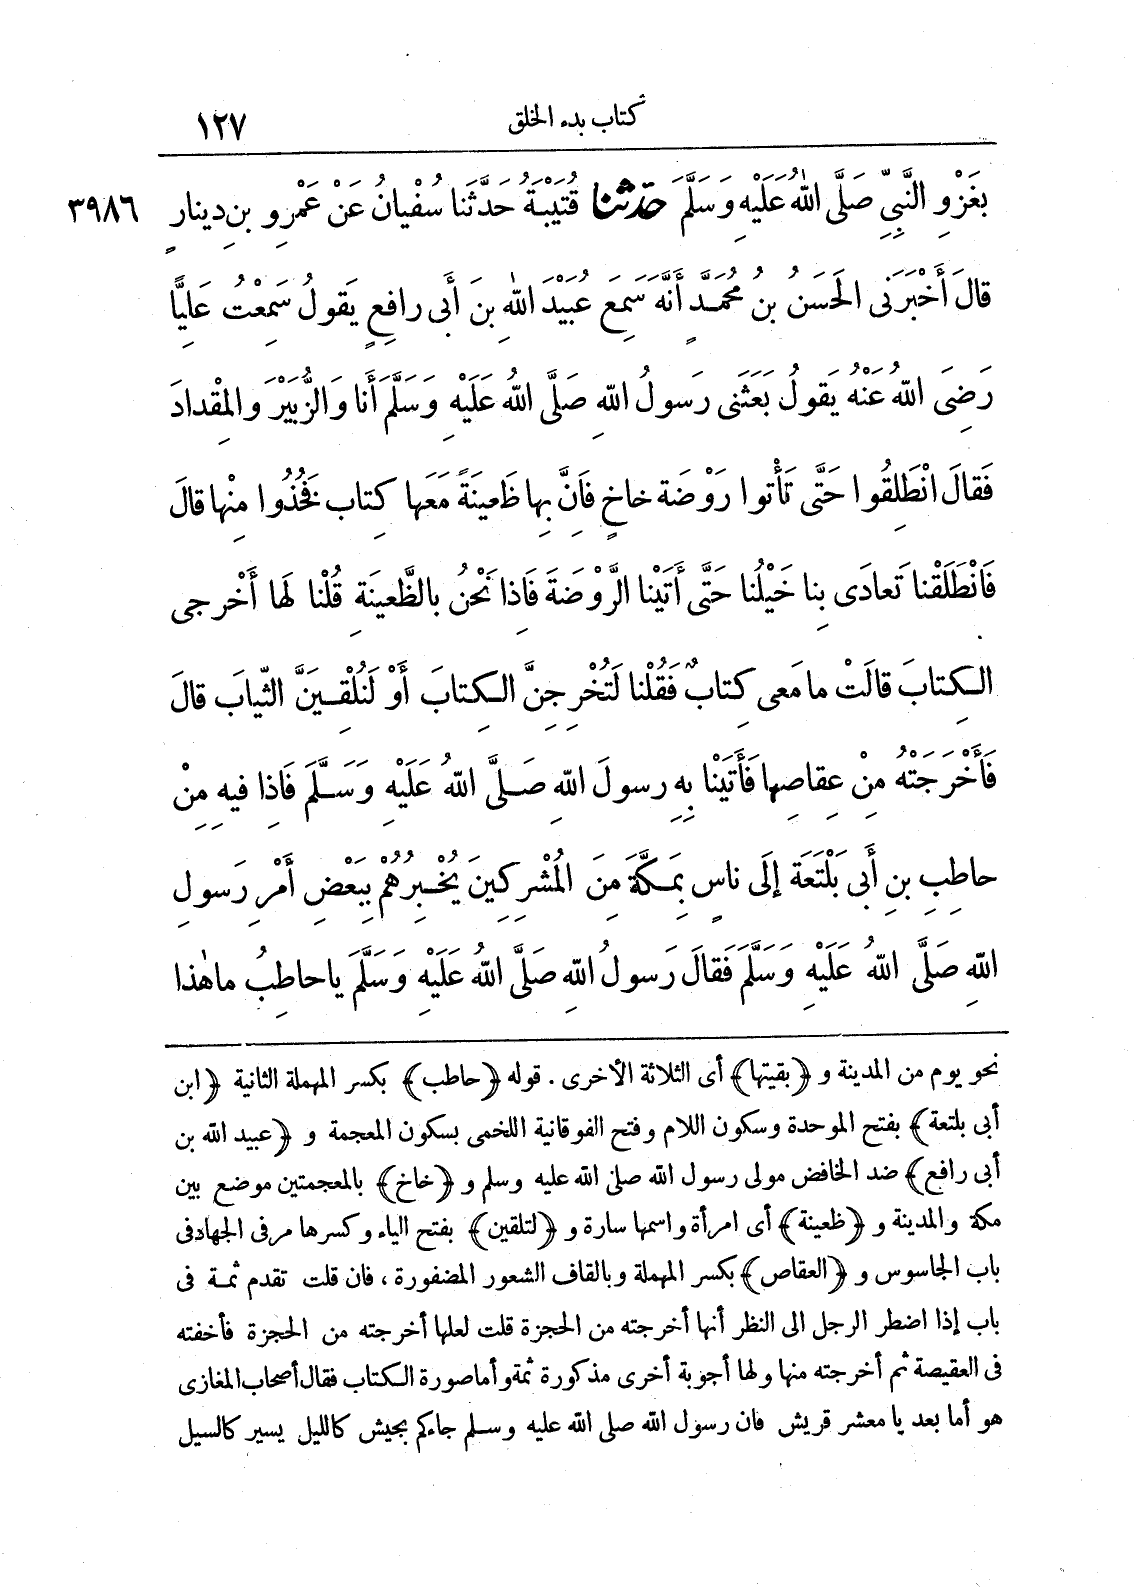 كتاب بدء الخلق ١٢٧
بِغَزْوِ النَّبِيِّ صَلَّى اللهُ عَلَيْهِ وَسَلَّمَ حَدَّثَنَا قُتَيْبَةُ حَدَّثَنا سُفْيانُ عَنْ عَمْرِو بنِ دِينارٍ ٣٩٨٦
قالَ أَخْبَرَنِى الحَسَنُ بنُ مُحَمَّدٍ أَنَّهُ سَمِعَ عُبَيْدَ اللهِ بنَ أَبى رافِعٍ يَقولُ سَمِعْتُ عَلِيًّا
رَضِىَ اللهُ عَنْهُ يَقولُ بَعَثَنى رَسولُ اللهِ صَلَّى اللهُ عَلَيْهِ وَسَلَّمَ أَنا وَالزُّبَيْرَ وَالمِقْدادَ
فَقالَ انْطَلِقُوا حَتَّى تَأْتوا رَوْضَةَ خاخٍ فَانَّ بِها ظَعينَةً مَعَها كِتاب فَخُذُوا مِنْها قالَ
فَانْطَلَقْنا تَعادَى بِنا خَيْلُنا حَتَّى أَتَيْنا الرَّوْضَةَ فَاذا نَحْنُ بالظَّعينَةِ قُلْنا لَها أَخْرِجى
الكِتابَ قالَتْ ما مَعى كِتابٌ فَقُلْنا لَتُخْرِجِنَّ الكِتابَ أَوْ لَنُلْقِيَنَّ الثّيابَ قالَ
فَأَخْرَجَتْهُ مِنْ عِقاصِها فَأَتَيْنا بِهِ رسولَ اللهِ صَلَّى اللهُ عَلَيْهِ وَسَلَّمَ فَاذا فيهِ مِنْ
حاطِبِ بنِ أَبى بَلْتَعَةَ إلَى ناسٍ بِمَكَّةَ مِنَ المُشْرِكِينَ يُخْبِرُهُمْ بِبَعْضِ أَمْرِ رَسولِ
اللهِ صَلَّى اللهُ عَلَيْهِ وَسَلَّمَ فَقالَ رَسولُ اللهِ صَلَّى اللهُ عَلَيْهِ وَسَلَّمَ ياحاطِبُ ماهٰذا
نحو يوم من المدينة و ﴿بقيتها﴾ أى الثلاثة الأخرى . قوله ﴿حاطب﴾ بكسر المهملة الثانية ﴿ابن
أبى بلتعة﴾ بفتح الموحدة وسكون اللام وفتح الفوقانية اللخمى بسكون المعجمة و ﴿عبيد الله بن
أبى رافع﴾ ضد الخافض مولى رسول الله صلى الله عليه وسلم و ﴿خاخ﴾ بالمعجمتين موضع بين
مكة والمدينة و ﴿ظعينة﴾ أى امرأة واسمها سارة و ﴿لتلقين﴾ بفتح الياء وكسرها مر فى الجهاد فى
باب الجاسوس و ﴿العقاص﴾ بكسر المهملة وبالقاف الشعور المضفورة ، فان قلت تقدم ثمة فى
باب إذا اضطر الرجل الى النظر أنها أخرجته من الحجزة قلت لعلها أخرجته من الحجزة فأخفته
فى العقيصة ثم أخرجته منها ولها أجوبة أخرى مذكورة ثمة وأما صورة الكتاب فقال أصحاب المغازى
هو أما بعد يا معشر قريش فان رسول الله صلى الله عليه وسلم جاءكم بجيش كالليل يسير كالسيل